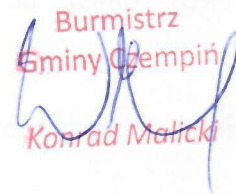 Burmistrz
Gminy Czempiń
Konrad Malicki